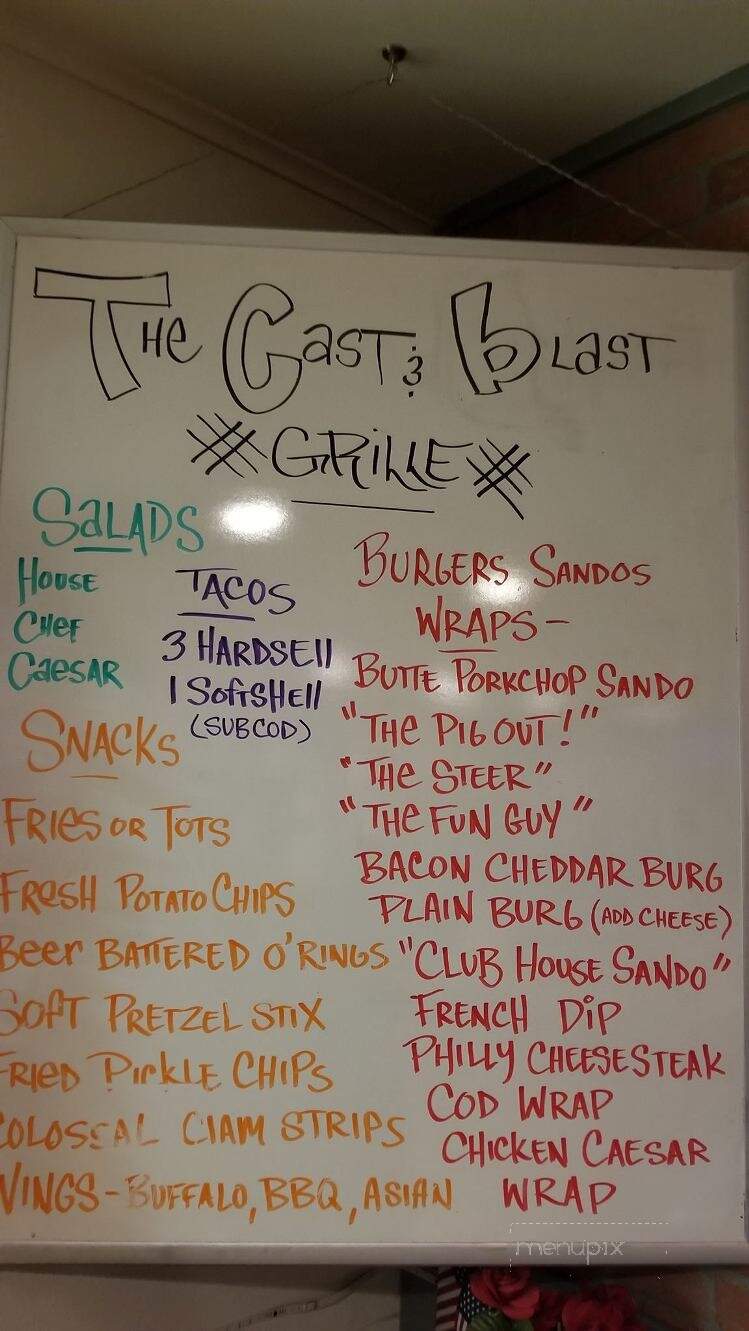 The Cast & Blast
GRILLE
SALADS
HOUSE
CHEF
CAESAR
TACOS
3 HARDSEll
1 SOFTSHEll
(SUB COD)
SNACKS
FRIES OR TOTS
FRESH POTATO CHIPS
Beer BATTERED O'RINGS
SOFT PRETZEL STIX
FRIED PICKLE CHIPS
COLOSSAL CLAM STRIPS
WINGS - BUFFALO, BBQ, ASIAN
BURGERS SANDOS
WRAPS -
BUTTE PORKCHOP SANDO
"THE PIG OUT!"
"THE STEER"
"THE FUN GUY"
BACON CHEDDAR BURG
PLAIN BURG (ADD CHEESE)
"CLUB HOUSE SANDO"
FRENCH DIP
PHILLY CHEESESTEAK
COD WRAP
CHICKEN CAESAR
WRAP
menupix